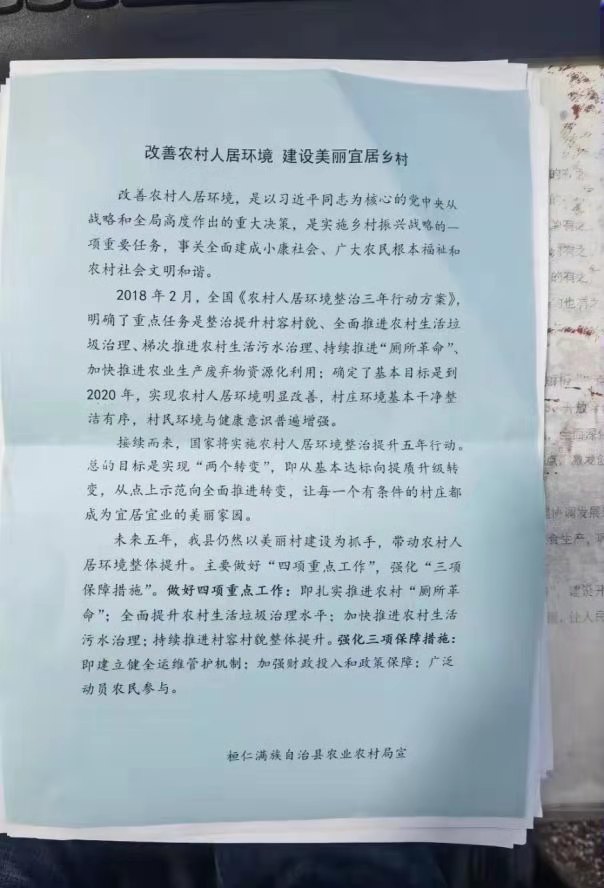 改善农村人居环境 建设美丽宜居乡村
改善农村人居环境，是以习近平同志为核心的党中央从
战略和全局高度作出的重大决策，是实施乡村振兴战略的一
项重要任务，事关全面建成小康社会、广大农民根本福祉和
农村社会文明和谐。
2018 年 2 月，全国《农村人居环境整治三年行动方案》，
明确了重点任务是整治提升村容村貌、全面推进农村生活垃
圾治理、梯次推进农村生活污水治理、持续推进“厕所革命”、
加快推进农业生产废弃物资源化利用；确定了基本目标是到
2020 年，实现农村人居环境明显改善，村庄环境基本干净整
洁有序，村民环境与健康意识普遍增强。
接续而来，国家将实施农村人居环境整治提升五年行动。
总的目标是实现“两个转变”，即从基本达标向提质升级转
变，从点上示范向全面推进转变，让每一个有条件的村庄都
成为宜居宜业的美丽家园。
未来五年，我县仍然以美丽村建设为抓手，带动农村人
居环境整体提升。主要做好“四项重点工作”，强化“三项
保障措施”。做好四项重点工作：即扎实推进农村“厕所革
命”；全面提升农村生活垃圾治理水平；加快推进农村生活
污水治理；持续推进村容村貌整体提升。强化三项保障措施：
即建立健全运维管护机制；加强财政投入和政策保障；广泛
动员农民参与。
桓仁满族自治县农业农村局宣
的有之
协调发展
食生产，
建设
让人民